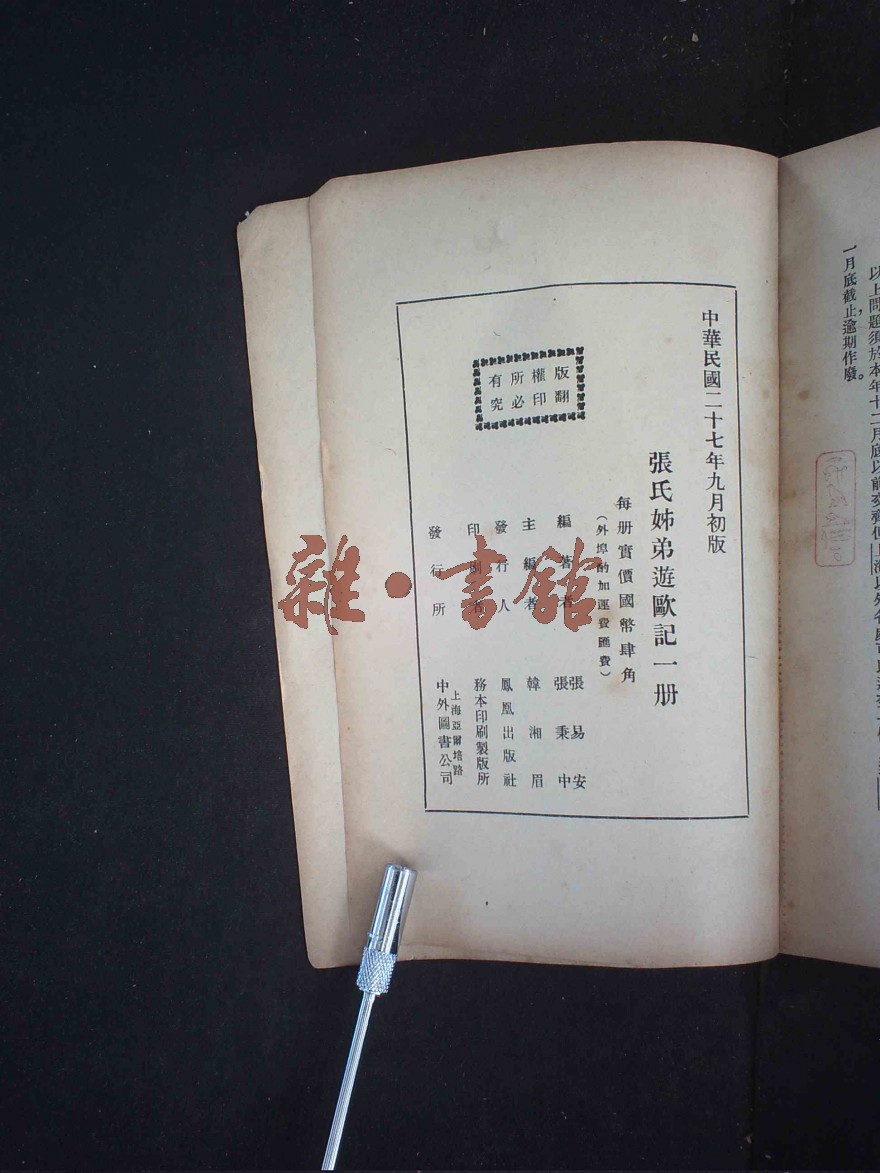 以上問題須於本年十二月底以前交齊但上海以外各處可
一月底截止逾期作廢。
中華民國二十七年九月初版
張氏姊弟遊歐記一册
每册實價國幣肆角
（外埠酌加運費匯費）
版權所有
翻印必究
編著者 張易安
張秉中
主編者 韓湘眉
發行人 鳳凰出版社
印刷者 務本印刷製版所
發行所 上海亞爾培路
中外圖書公司
雜·書館